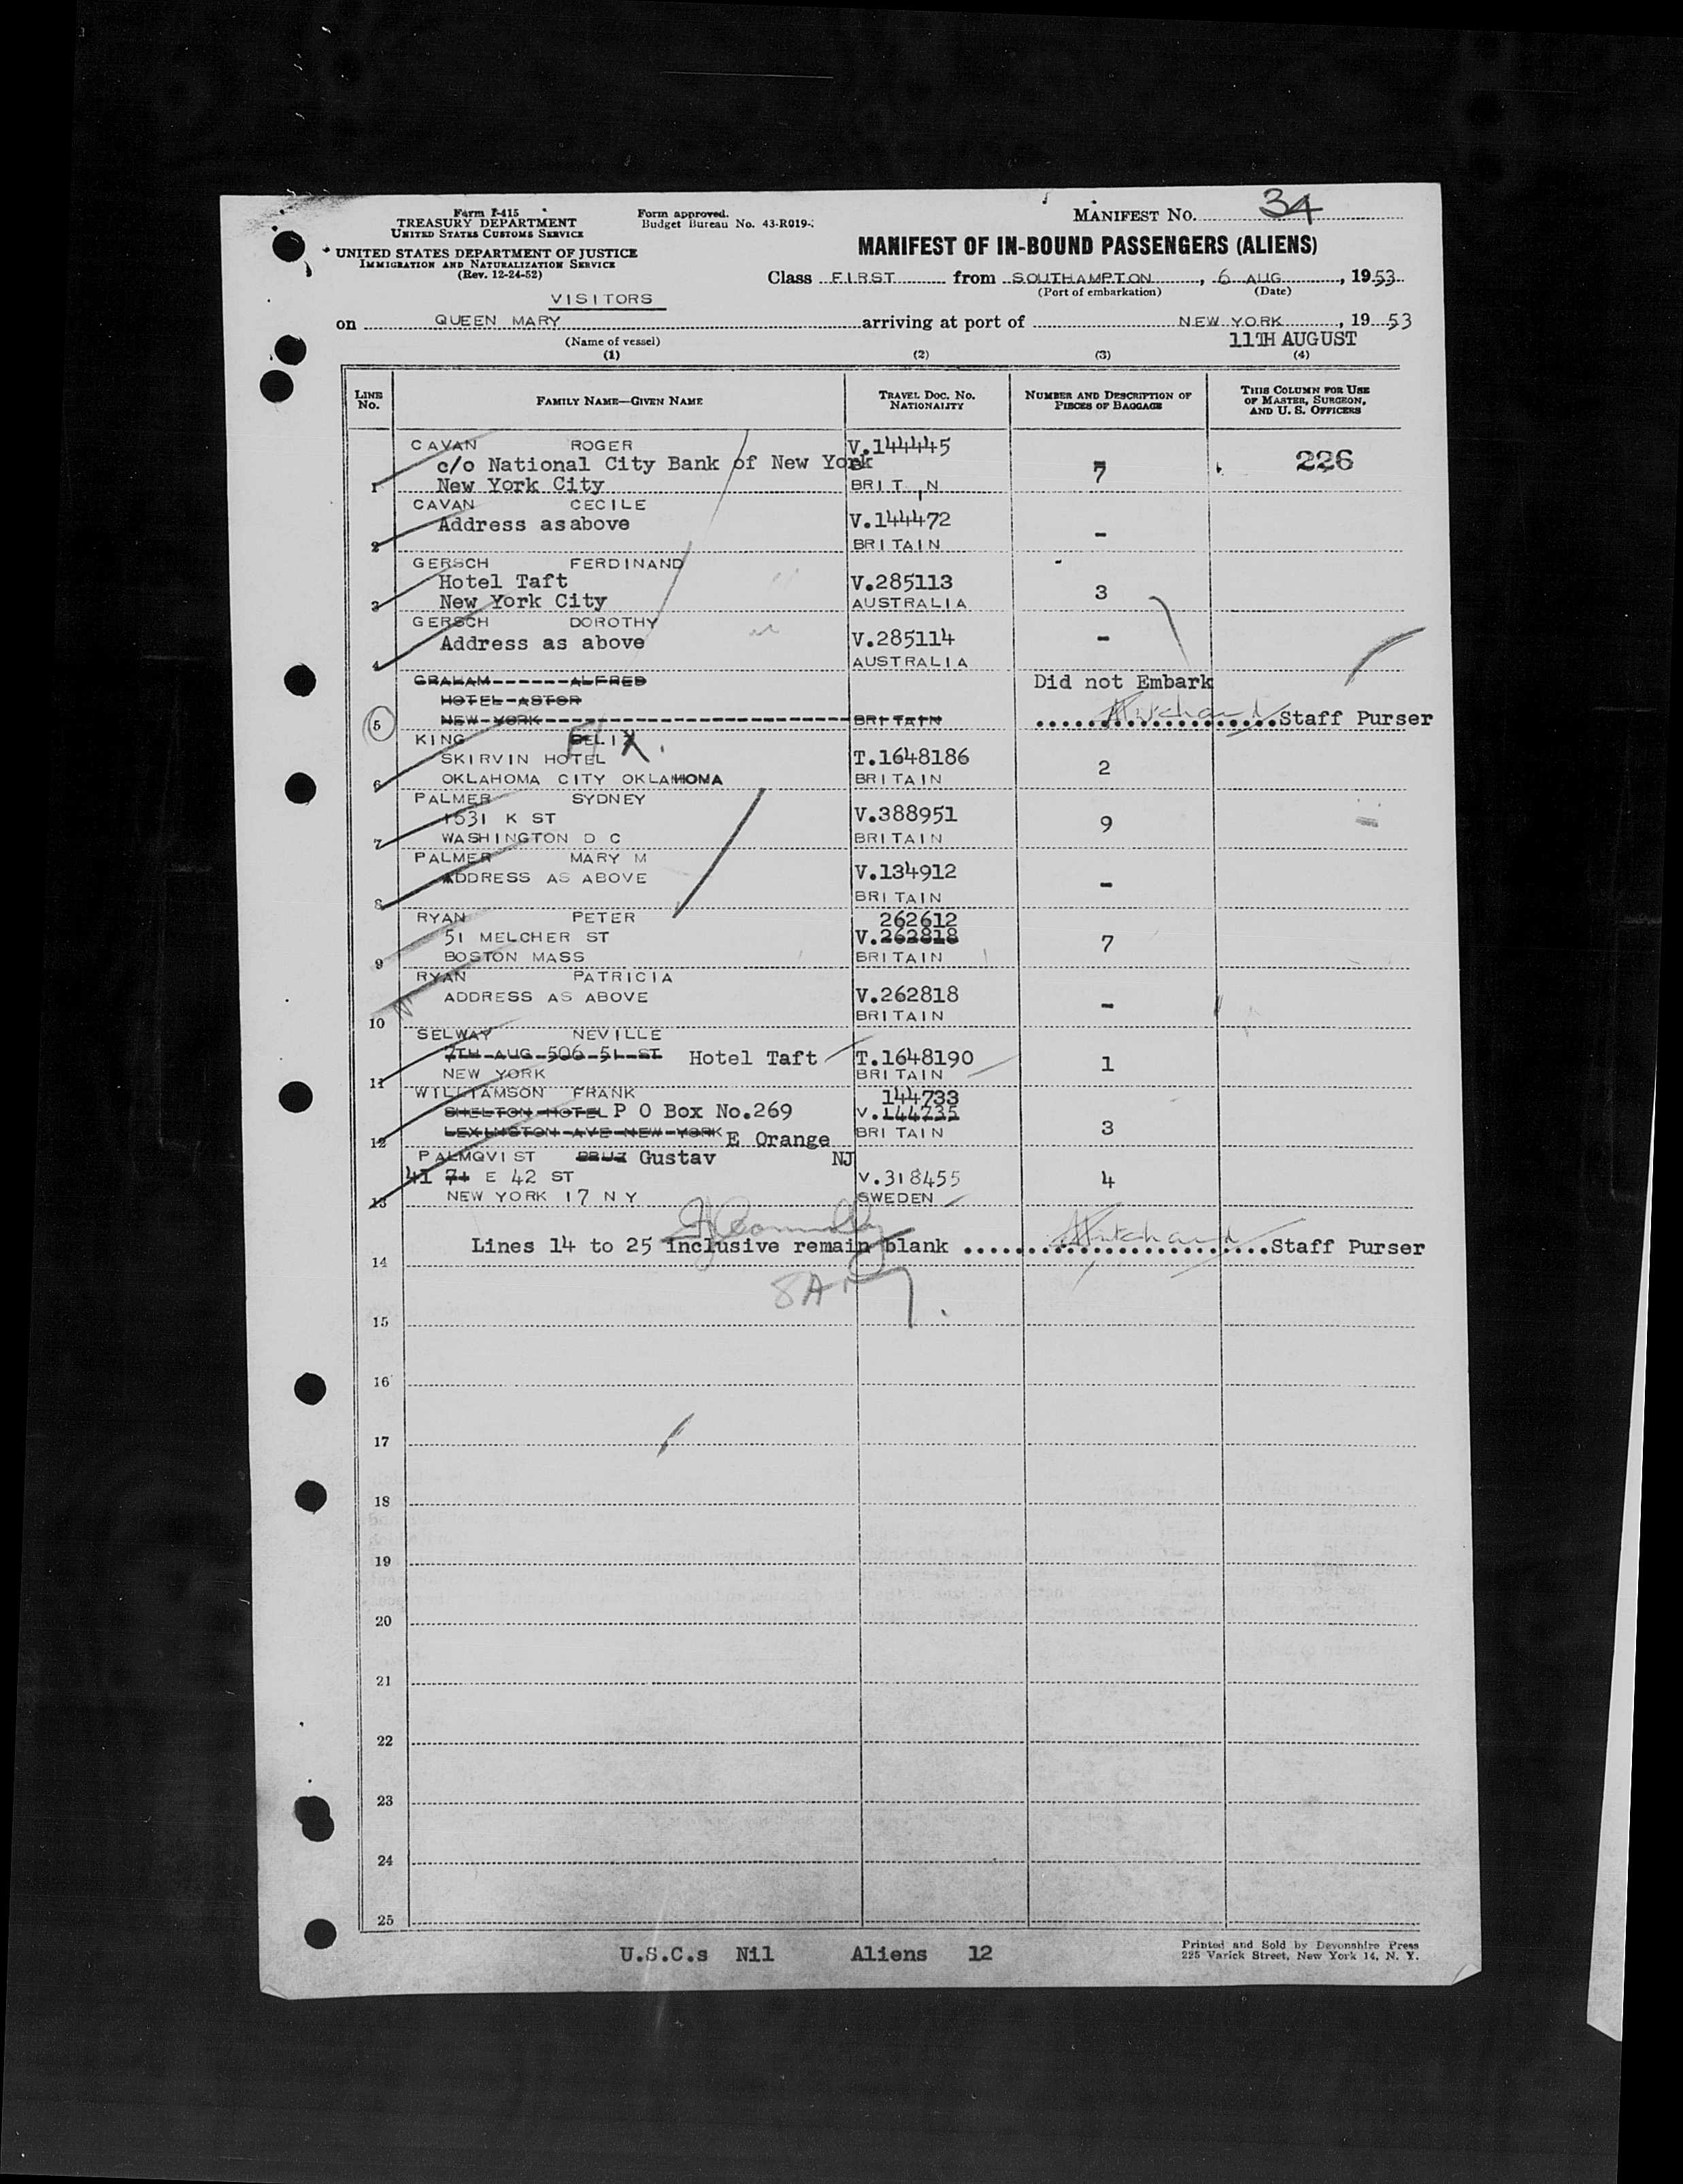 Form I-415
TREASURY DEPARTMENT
UNITED STATES CUSTOMS SERVICE
UNITED STATES DEPARTMENT OF JUSTICE
IMMIGRATION AND NATURALIZATION SERVICE
(Rev. 12-24-52)
Form approved.
Budget Bureau No. 43-R019-
MANIFEST NO. 34
MANIFEST OF IN-BOUND PASSENGERS (ALIENS)
Class FIRST from SOUTHAMPTON, 6 AUG, 1953
(Port of embarkation) (Date)
VISITORS
on QUEEN MARY arriving at port of NEW YORK, 1953
(Name of vessel) 11TH AUGUST
(1) (2) (3) (4)
LINE No. FAMILY NAME—GIVEN NAME TRAVEL DOC. NO. NATIONALITY NUMBER AND DESCRIPTION OF PIECES OF BAGGAGE THIS COLUMN FOR USE OF MASTER, SURGEON, AND U. S. OFFICERS
CAVAN ROGER V.144445
c/o National City Bank of New York 7 226
1 New York City BRIT N
CAVAN CECILE
Address as above V.144472 -
2 BRITAIN
GERSCH FERDINAND
Hotel Taft V.285113 3
3 New York City AUSTRALIA
GERSCH DOROTHY
Address as above V.285114 -
4 AUSTRALIA
GRAHAM ALFRED Did not Embark
HOTEL ASTOR
5 NEW YORK BRITAIN Staff Purser
KING FELIX
SKIRVIN HOTEL T.1648186 2
6 OKLAHOMA CITY OKLAHOMA BRITAIN
PALMER SYDNEY
1531 K ST V.388951 9
7 WASHINGTON D C BRITAIN
PALMER MARY M
ADDRESS AS ABOVE V.134912 -
8 BRITAIN
RYAN PETER 262612
51 MELCHER ST V.262818 7
9 BOSTON MASS BRITAIN
RYAN PATRICIA
ADDRESS AS ABOVE V.262818 -
10 BRITAIN
SELWAY NEVILLE
7TH AUG 506 51 ST Hotel Taft T.1648190 1
11 NEW YORK BRITAIN
WILLIAMSON FRANK 144733
SHELTON HOTEL P O Box No.269 V.144735 3
12 LEXINGTON AVE NEW YORK E Orange BRITAIN
PALMQVIST Gustav NJ
41 71 E 42 ST V.318455 4
13 NEW YORK 17 N Y SWEDEN
Lines 14 to 25 inclusive remain blank Staff Purser
14
15
16
17
18
19
20
21
22
23
24
25
U.S.C.s Nil Aliens 12
Printed and Sold by Devonshire Press
225 Varick Street, New York 14, N. Y.